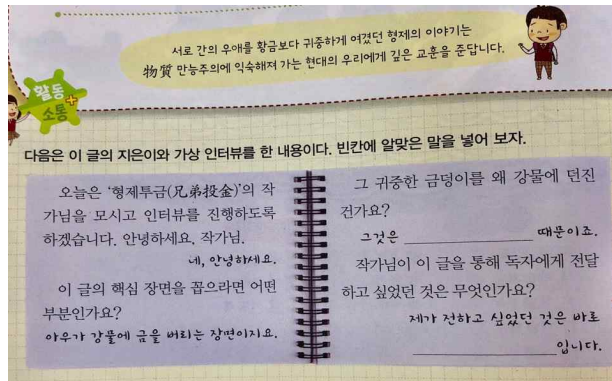 서로 간의 우애를 황금보다 귀중하게 여겼던 형제의 이야기는
物質 만능주의에 익숙해져 가는 현대의 우리에게 깊은 교훈을 준답니다.
활동+
소통
다음은 이 글의 지은이와 가상 인터뷰를 한 내용이다. 빈칸에 알맞은 말을 넣어 보자.
오늘은 '형제투금(兄弟投金)'의 작
가님을 모시고 인터뷰를 진행하도록
하겠습니다. 안녕하세요, 작가님.
네, 안녕하세요.
이 글의 핵심 장면을 꼽으라면 어떤
부분인가요?
아우가 강물에 금을 버리는 장면이지요.
그 귀중한 금덩이를 왜 강물에 던진
건가요?
그것은 ____________ 때문이죠.
작가님이 이 글을 통해 독자에게 전달
하고 싶었던 것은 무엇인가요?
제가 전하고 싶었던 것은 바로
____________입니다.